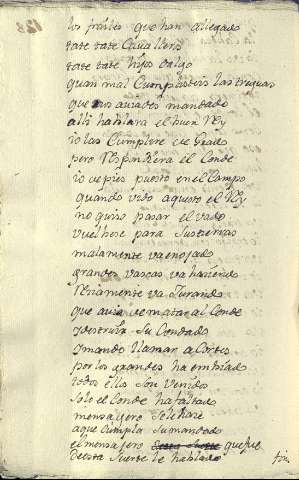 128
los frailes que han allegado
tate tate Cavallero
tate tate hijo dalgo
quan mal Cumplisteis las treguas
que nos aviades mandado
alli hablara el buen Rey
io las Cumplire de Grado
pero Respondiera el Conde
io de pies puesto en el Campo
quando vido aquesto el Rey
no quiso pasar el vado
vuelbese para sus tierras
malamente va enojado
grandes vascas va haciendo
Reciamente va Jurando
que avia de matar al Conde
y destruir Su Condado
y mando llamar a Cortes
por los grandes ha embiado
todos ellos son venidos
solo el Conde ha faltado
mensajero se le hace
a que Cumpla su mandado
el mensajero que fue
de esta Suerte le hablado
fin.